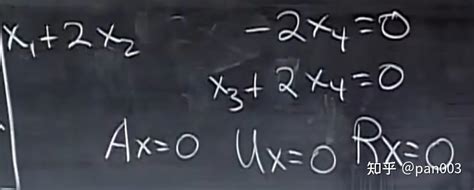 x₁+2x₂ -2x₄=0
x₃+2x₄=0
Ax=0 Ux=0 Rx=0
知乎 @pan003